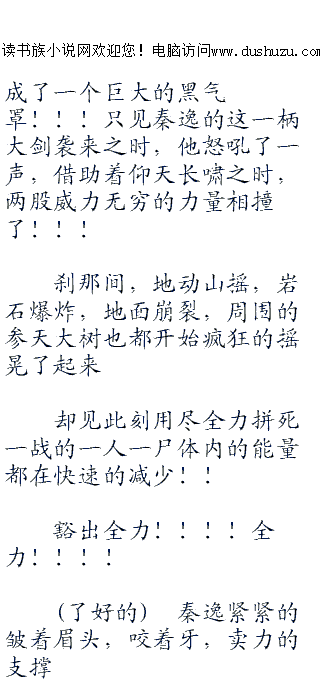 读书族小说网欢迎您！电脑访问www.dushuzu.com
成了一个巨大的黑气
罩！！！只见秦逸的这一柄
大剑袭来之时，他怒吼了一
声，借助着仰天长啸之时，
两股威力无穷的力量相撞
了！！！
刹那间，地动山摇，岩
石爆炸，地面崩裂，周围的
参天大树也都开始疯狂的摇
晃了起来
却见此刻用尽全力拼死
一战的一人一尸体内的能量
都在快速的减少！！
豁出全力！！！！全
力！！！！
（了好的） 秦逸紧紧的
皱着眉头，咬着牙，卖力的
支撑